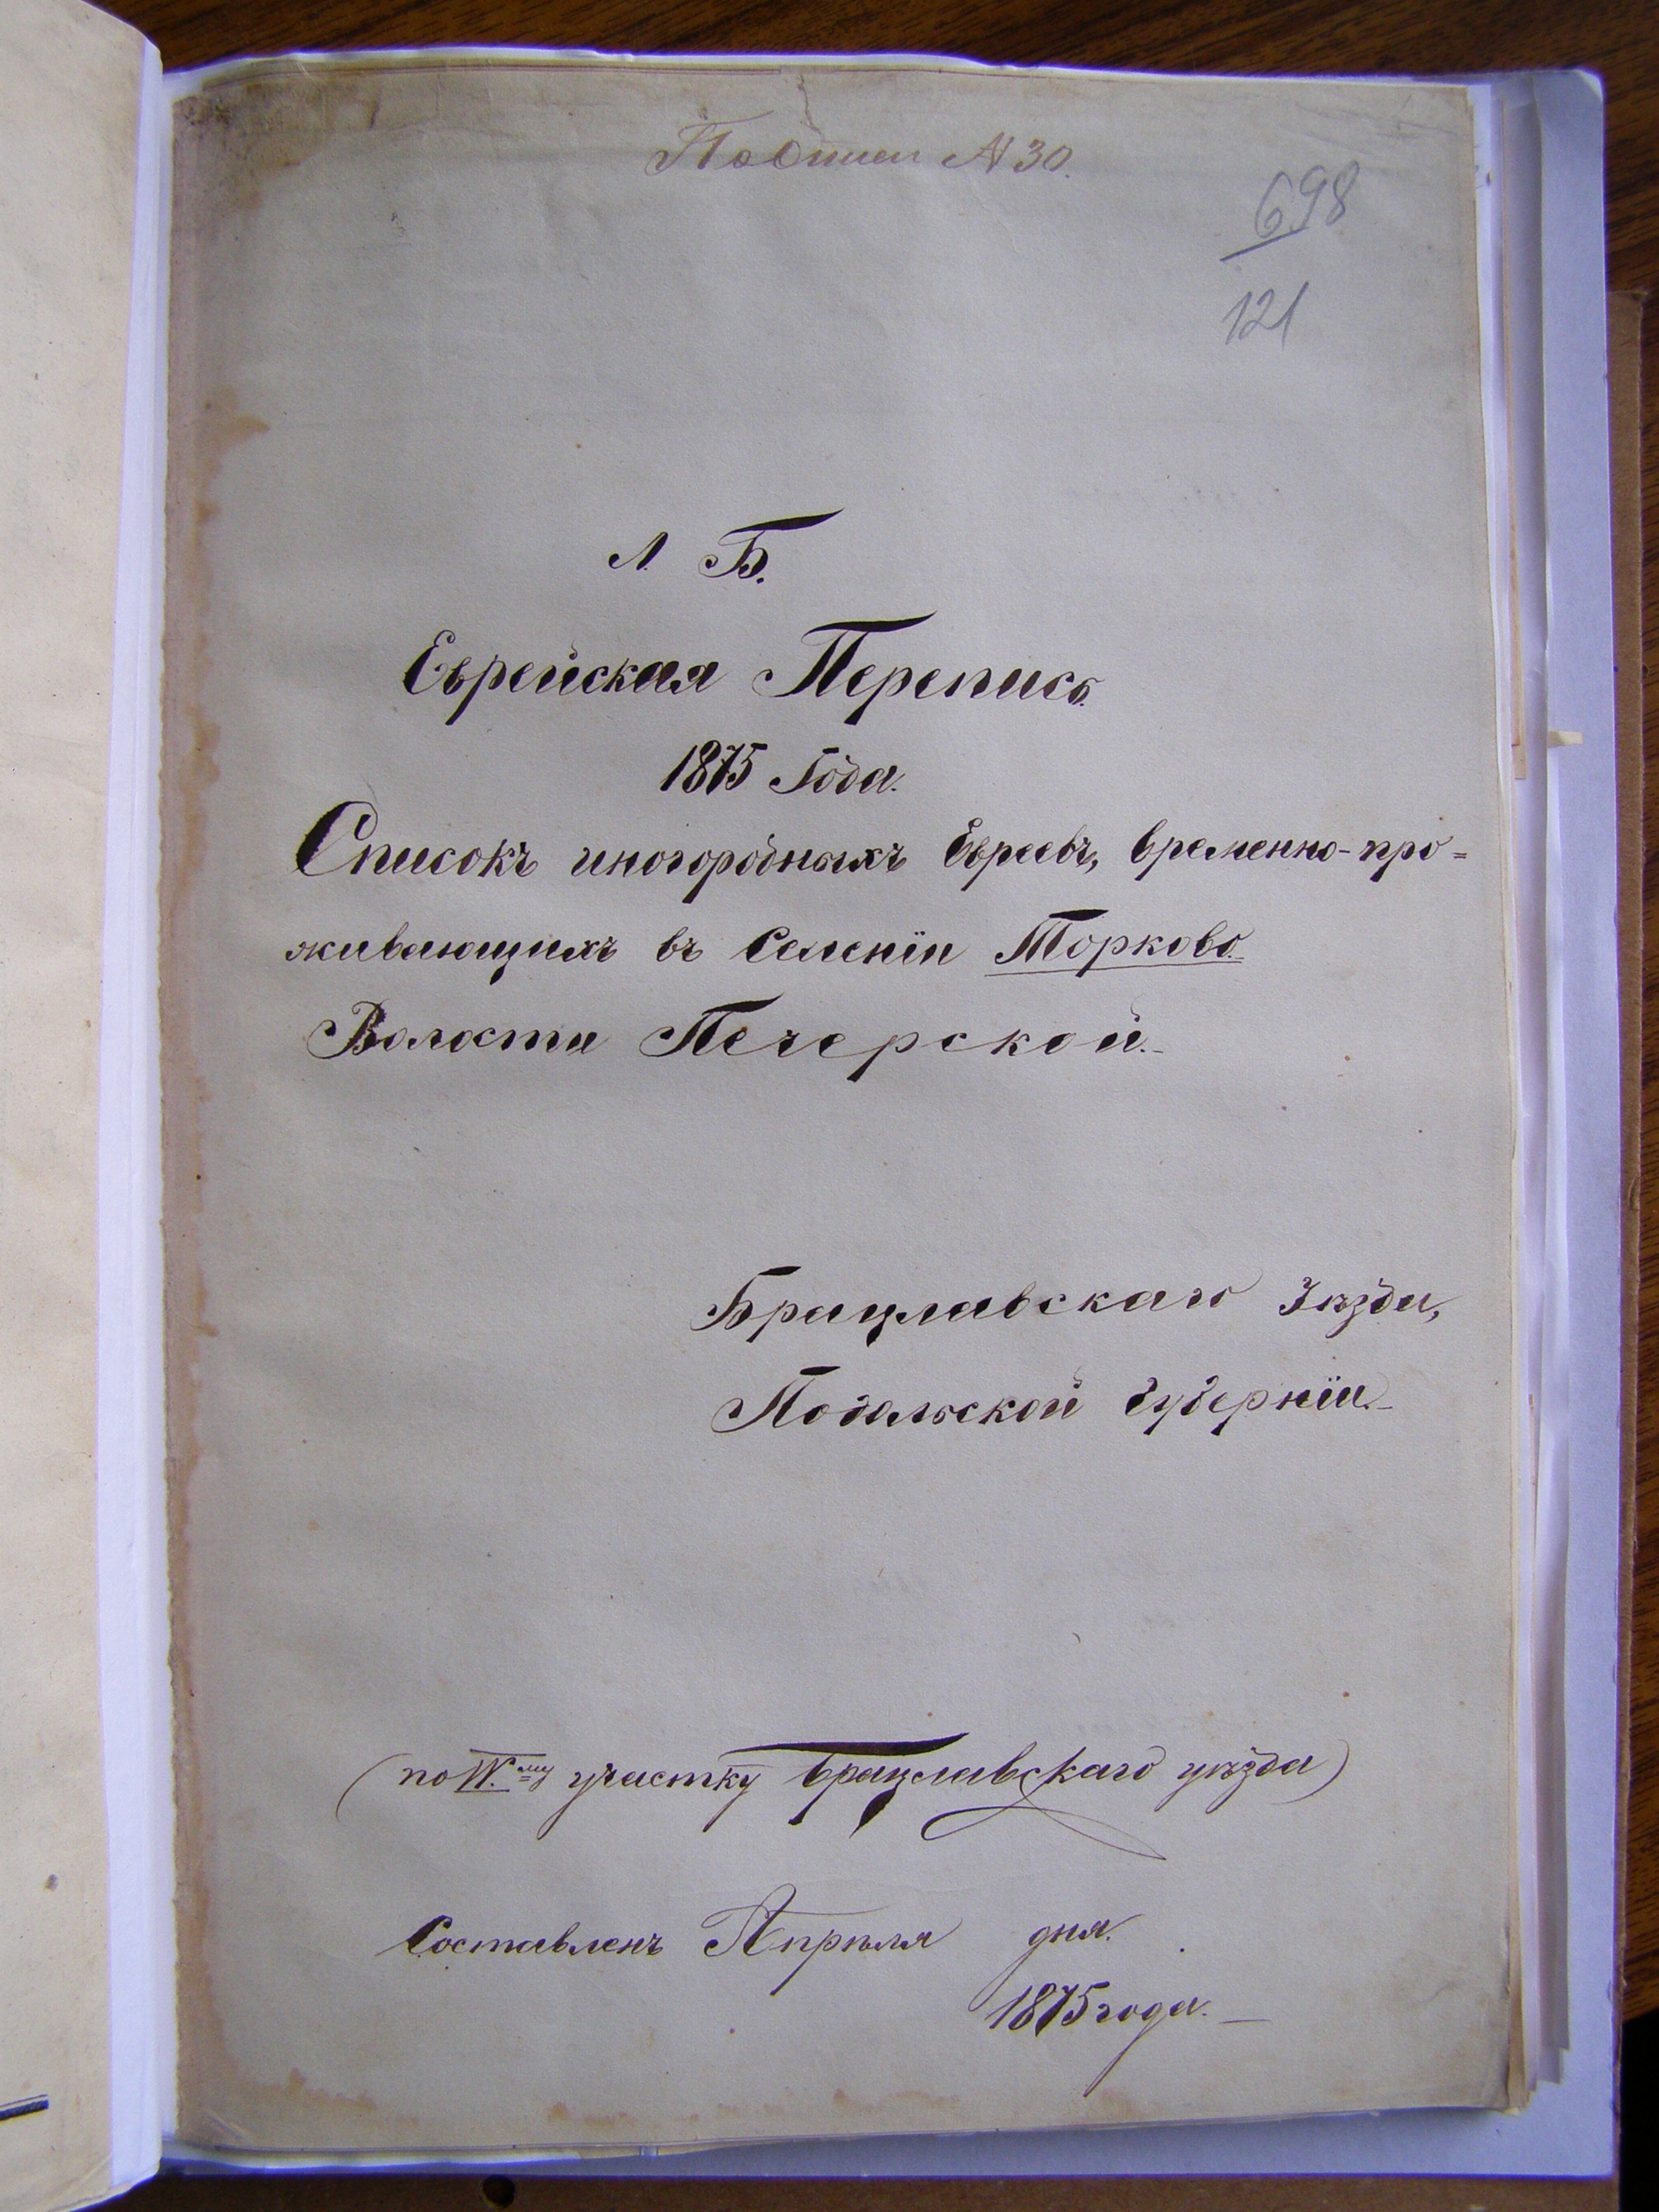 По описи № 30.
698
121
Л. Б.
Еврейская Перепись.
1875 Года.
Списокъ иногородныхъ Евреевъ, временно-про=
живающихъ въ Селенiи Торково.
Волости Печерской.
Брацлавскаго Уѣзда,
Подольской Губернiи.
(по IV.му участку Брацлавскаго уѣзда)
Составленъ Апрѣля дня.
1875 года.